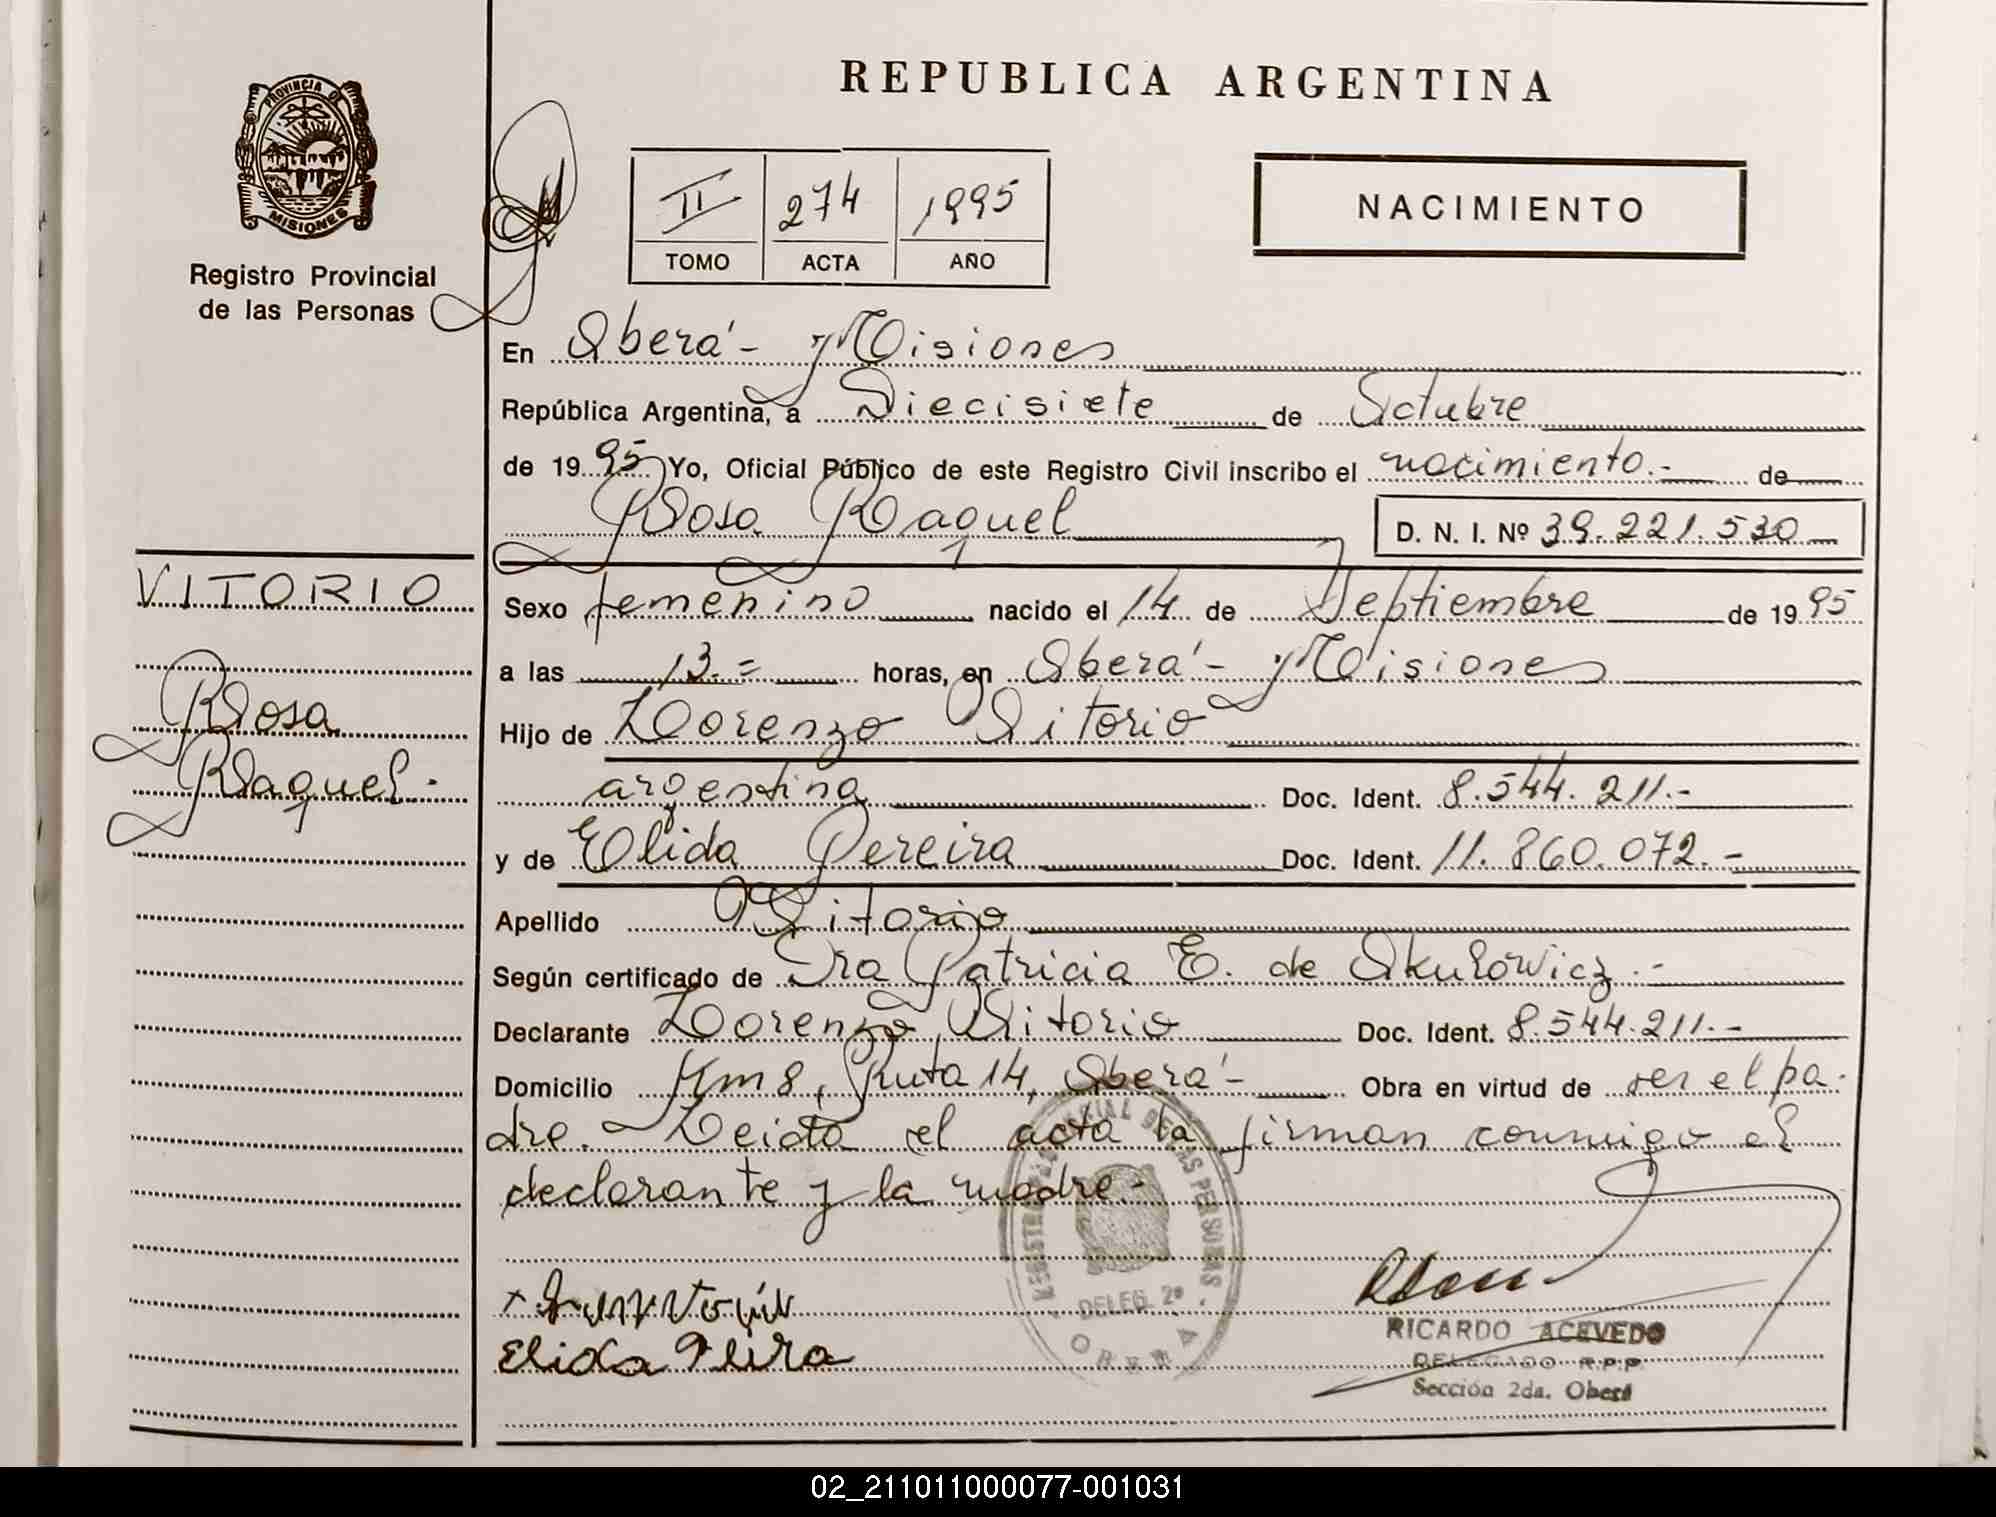 REPUBLICA ARGENTINA
PROVINCIA DE
MISIONES
Registro Provincial
de las Personas
II 274 1995
TOMO ACTA AÑO
NACIMIENTO
En Oberá - Misiones
República Argentina, a Diecisiete de Octubre
de 1995 Yo, Oficial Público de este Registro Civil inscribo el nacimiento.- de
Rosa Raquel D. N. I. Nº 39.221.530
VITORIO
Rosa
Raquel.
Sexo femenino nacido el 14 de Septiembre de 1995
a las 13.= horas, en Oberá - Misiones
Hijo de Lorenzo Vitorio
argentina Doc. Ident. 8.544.211.-
y de Elida Pereira Doc. Ident. 11.860.072.-
Apellido Vitorio
Según certificado de Dra Patricia E. de Skulowicz.-
Declarante Lorenzo Vitorio Doc. Ident. 8.544.211.-
Domicilio Km 8, Ruta 14, Oberá - Obra en virtud de ser el pa-
dre. Leida el acta la firman conmigo el
declarante y la madre.-
REGISTRO PROVINCIAL DE LAS PERSONAS
DELEG. 2ª
OBERA
Elida
RICARDO ACEVEDO
DELEGADO R.P.P.
Sección 2da. Oberá
02_211011000077-001031